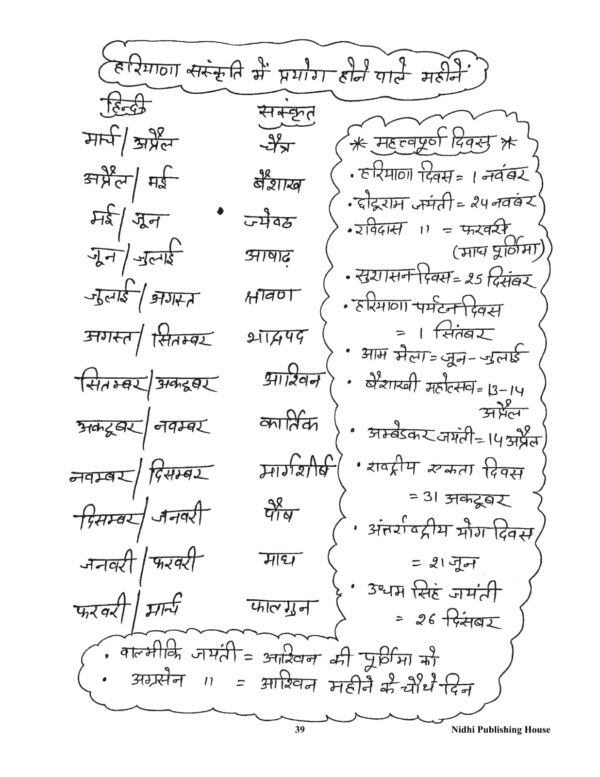 हरियाणा संस्कृति में प्रयोग होने वाले महीनें
हिन्दी संस्कृत
मार्च/अप्रैल चैत्र
अप्रैल/मई बैशाख
मई/जून • ज्येष्ठ
जून/जुलाई आषाढ़
जुलाई/अगस्त श्रावण
अगस्त/सितम्बर भाद्रपद
सितम्बर/अकटूबर आश्विन
अकटूबर/नवम्बर कार्तिक
नवम्बर/दिसम्बर मार्गशीर्ष
दिसम्बर/जनवरी पौष
जनवरी/फरवरी माघ
फरवरी/मार्च फाल्गुन
* महत्वपूर्ण दिवस *
• हरियाणा दिवस = 1 नवंबर
• छोटूराम जयंती = 24 नवबंर
• रविदास " = फरवरी
(माघ पूर्णिमा)
• सुशासन दिवस = 25 दिसंबर
• हरियाणा पर्यटन दिवस
= 1 सितंबर
• आम मेला = जून-जुलाई
• बैशाखी महोत्सव = 13-14
अप्रैल
• अम्बेडकर जयंती = 14 अप्रैल
• राष्ट्रीय एकता दिवस
= 31 अकटूबर
• अंतर्राष्ट्रीय योग दिवस
= 21 जून
• उधम सिंह जयंती
= 26 दिसंबर
• वाल्मीकि जयंती = आश्विन की पूर्णिमा को
• अग्रसेन " = आश्विन महीने के चौथे दिन
39 Nidhi Publishing House